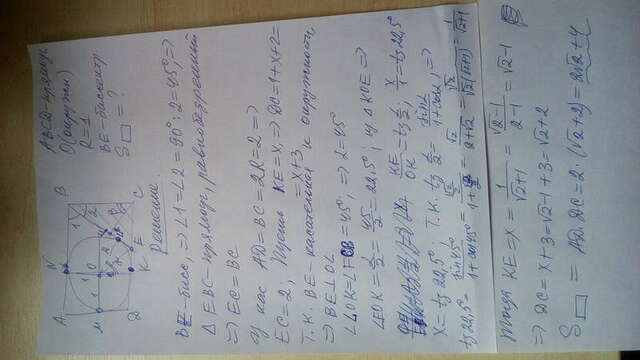 A N B
1 2
M 1 O
D K E C
ABCD-прямоуг.
O(окружн)
R=1
BE-биссектр.
S▭=?
Решение.
BE-бисс, => ∠1=∠2=90°:2=45°, =>
△ EBC-прямоуг, равнобедренный
=> EC=BC
У нас AD=BC=2R=2 =>
EC=2, Пусть KE=x, => DC=1+x+2=
=x+3
Т.К. BE-касательная к окружности,
=> BE⊥OL
∠LOK=∠ECB=45°, => α=45°
∠EOK=α/2=45/2=22,5°; из △KOE =>
KE/OK=tg α/2; x/1=tg22,5°
x=tg22,5°, Т.К. tg α/2 = sinα/1+cosα, =>
tg22,5°= sin45°/1+cos45° = √2/2/1+√2/2 = √2/2+√2 = √2/√2(√2+1) = 1/√2+1
Тогда KE=x= 1/√2+1 = √2-1/2-1 = √2-1
=> DC=x+3=√2-1+3=√2+2
S▭ = AD·DC=2·(√2+2)=2√2+4